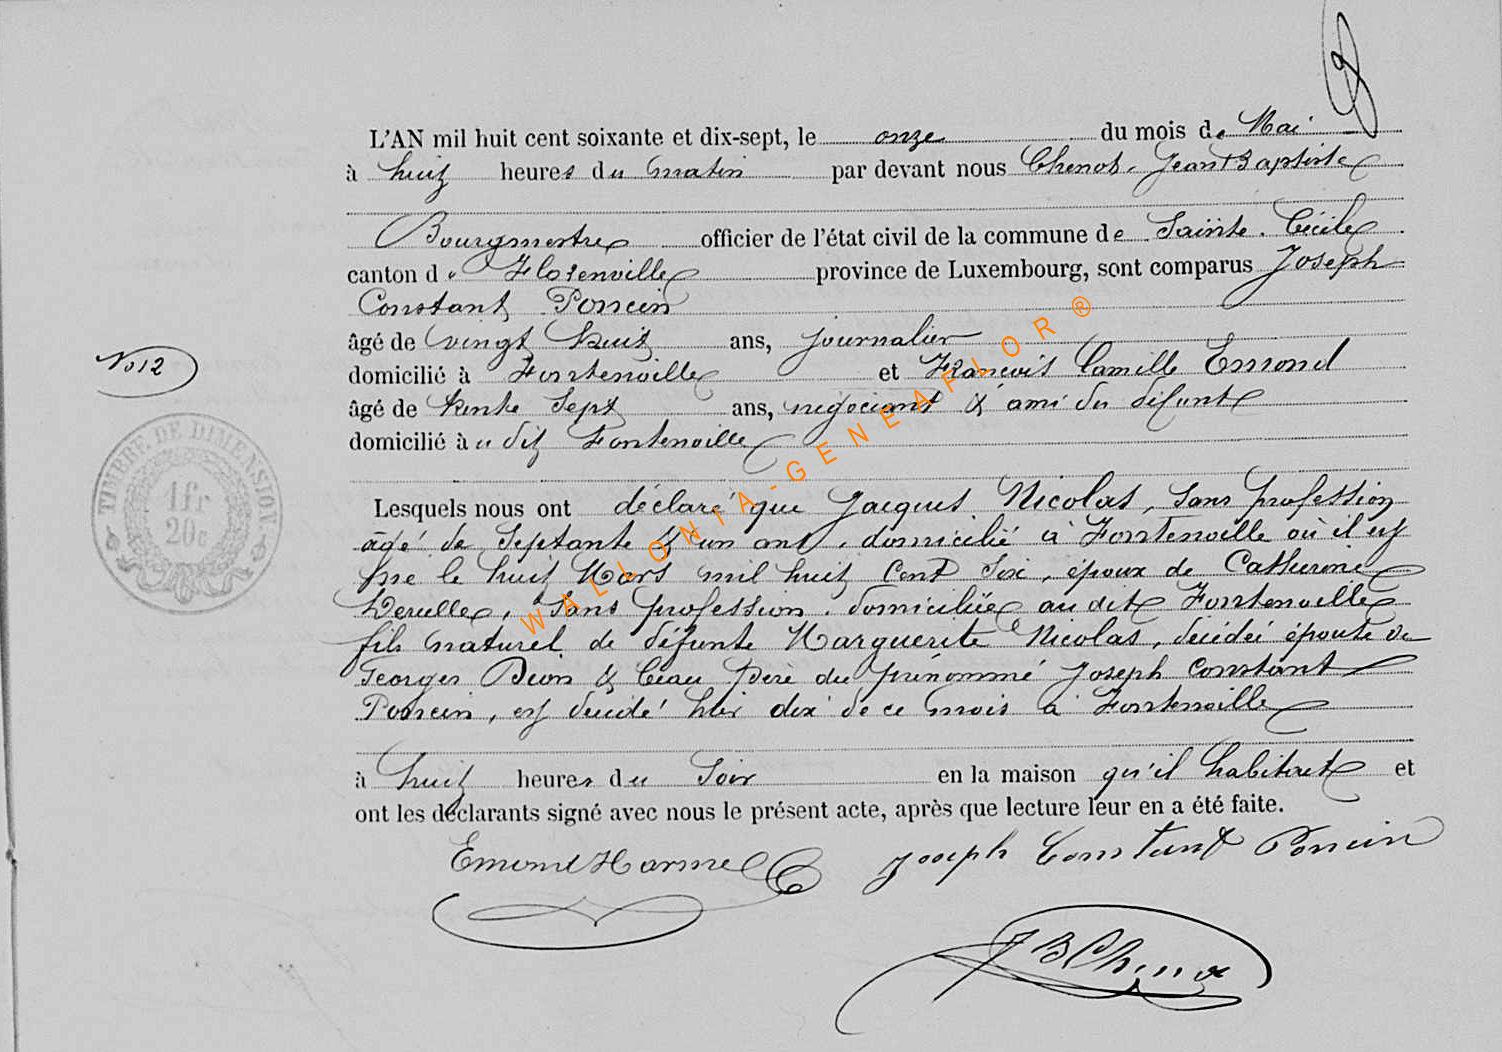 L'AN mil huit cent soixante et dix-sept, le onze du mois de Mai
à huit heures du matin par devant nous Chenot Jean Baptiste
Bourgmestre officier de l'état civil de la commune de Sainte Cécile
canton de Florenville province de Luxembourg, sont comparus Joseph
Constant Poncin
âgé de vingt huit ans, journalier
No 12
domicilié à Fontenoille et François Camille Emond
âgé de trente sept ans, négociant & ami du défunt
domicilié à u dit Fontenoille
TIMBRE DE DIMENSION
1 fr
20c
Lesquels nous ont déclaré que Jacques Nicolas, sans profession
âgé de septante & un ans, domicilié à Fontenoille où il est
né le huit Mars mil huit cent six, époux de Catherine
sans profession, domiciliée au dit Fontenoille
fils naturel de défunte Marguerite Nicolas, décédée épouse de
Georges & beau père du prénommé Joseph Constant
Poncin, est décédé hier dix de ce mois à Fontenoille
à huit heures du soir en la maison qu'il habitait et
ont les déclarants signé avec nous le présent acte, après que lecture leur en a été faite.
Emond Harmel Joseph Constant Poncin
J B Chenot
WALLONIA-GENEAFLOR ®